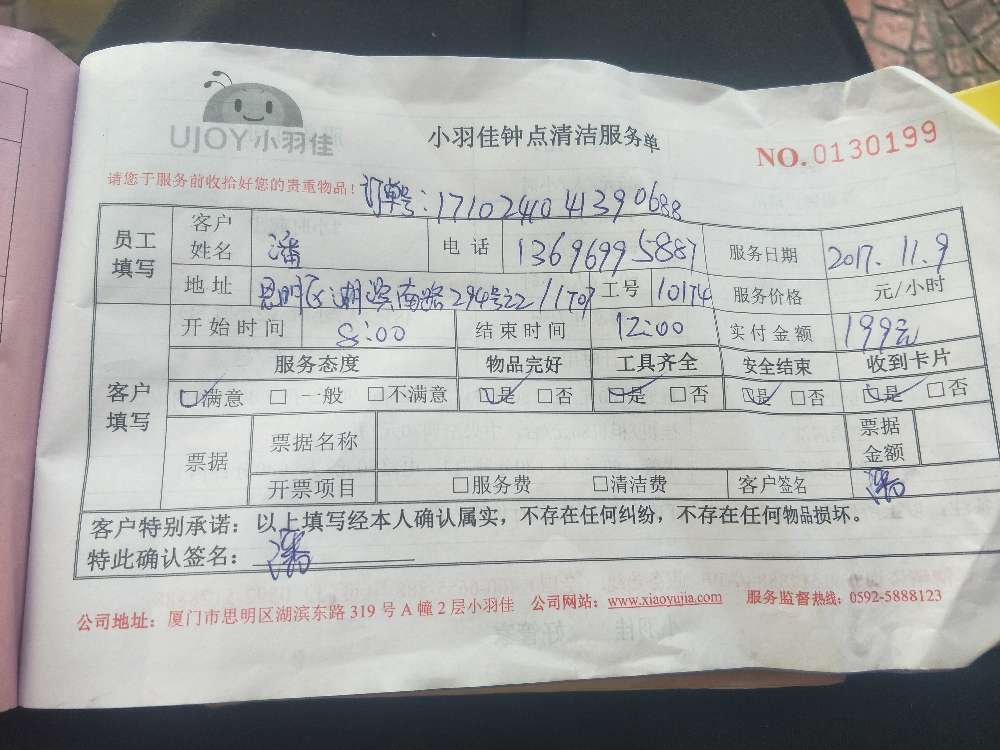 UJOY小羽佳
小羽佳钟点清洁服务单
NO.0130199
请您于服务前收拾好您的贵重物品！
订单号：171024041390688
员工填写 客户姓名 潘 电话 13696995887 服务日期 2017.11.9
地址 思明区湖滨南路294号22/1707 工号 10174 服务价格 元/小时
开始时间 8:00 结束时间 12:00 实付金额 199元
客户填写 服务态度 物品完好 工具齐全 安全结束 收到卡片
□满意 □一般 □不满意 □是 □否 □是 □否 □是 □否 □是 □否
票据 票据名称 票据金额
开票项目 □服务费 □清洁费 客户签名 潘
客户特别承诺：以上填写经本人确认属实，不存在任何纠纷，不存在任何物品损坏。
特此确认签名：潘
公司地址：厦门市思明区湖滨东路319号A幢2层小羽佳 公司网站：www.xiaoyujia.com 服务监督热线：0592-5888123